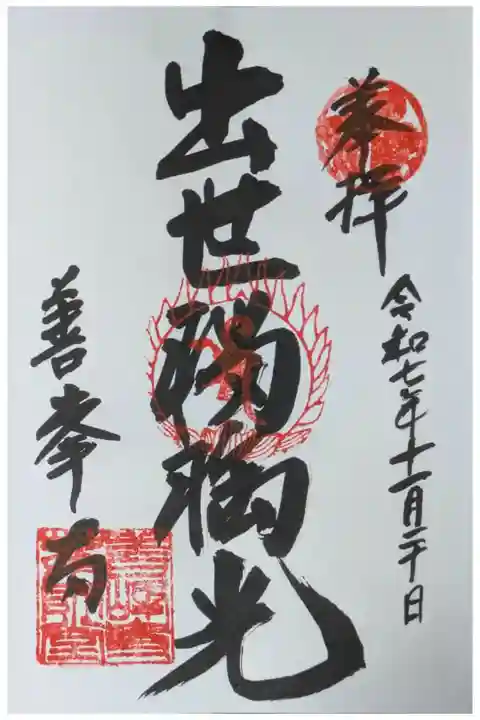 奉拝
令和七年十一月二十日
出世瑠璃光
善峯寺